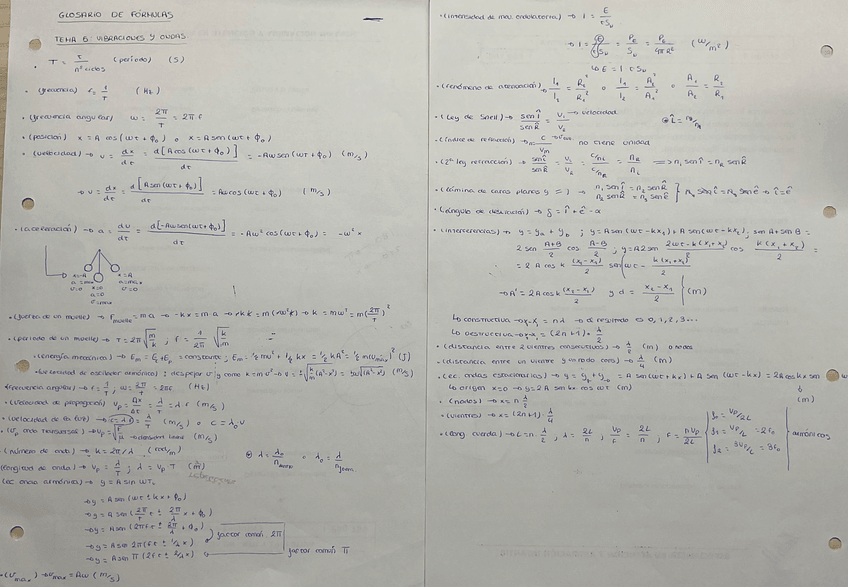 GLOSARIO DE FÓRMULAS
TEMA 6 VIBRACIONES Y ONDAS
· T = t / nº ciclos (período) (s)
· (frecuencia) f = 1/T (Hz)
· (frecuencia angular) ω = 2π/T = 2πf
· (posición) x = A cos(ωt + ϕ₀) o x = A sen(ωt + ϕ₀)
· (velocidad) → v = dx/dt = d[A cos(ωt + ϕ₀)]/dt = -Aω sen(ωt + ϕ₀) (m/s)
→ v = dx/dt = d[A sen(ωt + ϕ₀)]/dt = Aω cos(ωt + ϕ₀) (m/s)
· (aceleración) → a = dv/dt = d[-Aω sen(ωt + ϕ₀)]/dt = -Aω² cos(ωt + ϕ₀) = -ω² x
x=-A x=A
a=max x=0 a=max
v=0 a=0 v=0
v=max
· (fuerza de un muelle) → F muelle = m a → -kx = m a → k = mω² = m(2π/T)²
· (período de un muelle) → T = 2π√(m/k), f = 1/2π √(k/m)
· (energía mecánica) → Em = Ec + Ep = constante; Em = 1/2 mv² + 1/2 kx² = 1/2 kA² = 1/2 m(vmáx)² (J)
· (velocidad de oscilador armónico) : despejar v y como k = m ω² → v = ±√(k/m (A²-x²)) = ±ω√(A²-x²) (m/s)
· (frecuencia angular) → f = 1/T, ω = 2π/T = 2πf (Hz)
· (velocidad de propagación) vp = Δx/Δt = λ/T = λ·f (m/s)
· (velocidad de la luz) → c = λ f = λ/T (m/s) o c = λ₀ν
· (vp onda transversal) → vp = √(T/μ) → densidad lineal (m/s)
· (número de onda) → k = 2π/λ (rad/m)
· (longitud de onda) → vp = λ/T ; λ = vp T (m)
(ec onda armónica) → y = A sin ωT₀
→ y = A sen(ωt ± kx + ϕ₀)
→ y = A sen(2π/T t ± 2π/λ x + ϕ₀)
→ y = A sen(2πft ± 2π/λ x + ϕ₀)
→ y = A sen 2π(ft ± 1/λ x) factor común 2π
→ y = A sen π(2ft ± 2/λ x) factor común π
· (vmax) → vmax = Aω (m/s)
· (intensidad de mov. → I = E/t·S
→ I = = P/S = P/4πR² (W/m²)
→ E = I t S
· (fenómeno de atenuación) I₁/I₂ = R₂²/R₁² o I₁/I₂ = A₁²/A₂² = A₁/A₂ = R₂/R₁
· (Ley de Snell) → sen î / sen R̂ = v₁/v₂ → velocidad
· (índice de refracción) → c/vm no tiene unidad
· (2ª ley refracción) → sen î / sen R̂ = v₁/v₂ = = nR/nL => n₁ sen î = n₂ sen R̂
· (lámina de caras planas y =) → n₁ sen î = n₂ sen R̂ n₂ sen R̂ = n₁ sen ê } n₁ sen î = n₁ sen ê → î = ê
· (ángulo de desviación) → δ = î + ê - α
· (interferencias) → y = ya + yb ; y = A sen(ωt - kx₁) + A sen(ωt - kx₂); sen A + sen B =
2 sen A+B/2 cos A-B/2 ; y = A 2 sen 2ωt - k(x₁+x₂)/2 cos k(x₁+x₂)/2 =
= 2 A cos k (x₂-x₁)/2 sen(ωt - k(x₁+x₂)/2
→ A' = 2A cos k (x₂-x₁)/2 y d = x₂-x₁/2 (m)
↳ constructiva → x₂-x₁ = nλ → d resultado es 0, 1, 2, 3...
↳ destructiva → x₂-x₁ = (2n+1)·λ/2
· (distancia entre 2 vientres consecutivos) → λ/2 (m) o nodos
· (distancia entre un vientre y un nodo cons) → λ/4 (m)
· (ec. ondas estacionarias) → y = y₁ + y₂ = A sen(ωt + kx) + A sen(ωt - kx) = 2A cos kx sen
↳ origen x=0 → y = 2A sen kx cos ωt (m) (m)
· (nodos) → x = n λ/2
· (vientres) → x = (2n+1)·λ/4
· (long cuerda) → L = n·λ/2, λ = 2L/n, vp/f = 2L/n, f = n vp/2L
f₀ = vp/2L
f₁ = vp/L = 2f₀
f₂ = 3vp/2L = 3f₀
armónicos